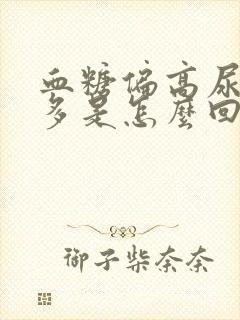 血糖偏高尿
多是怎麼回
御子柴奈奈